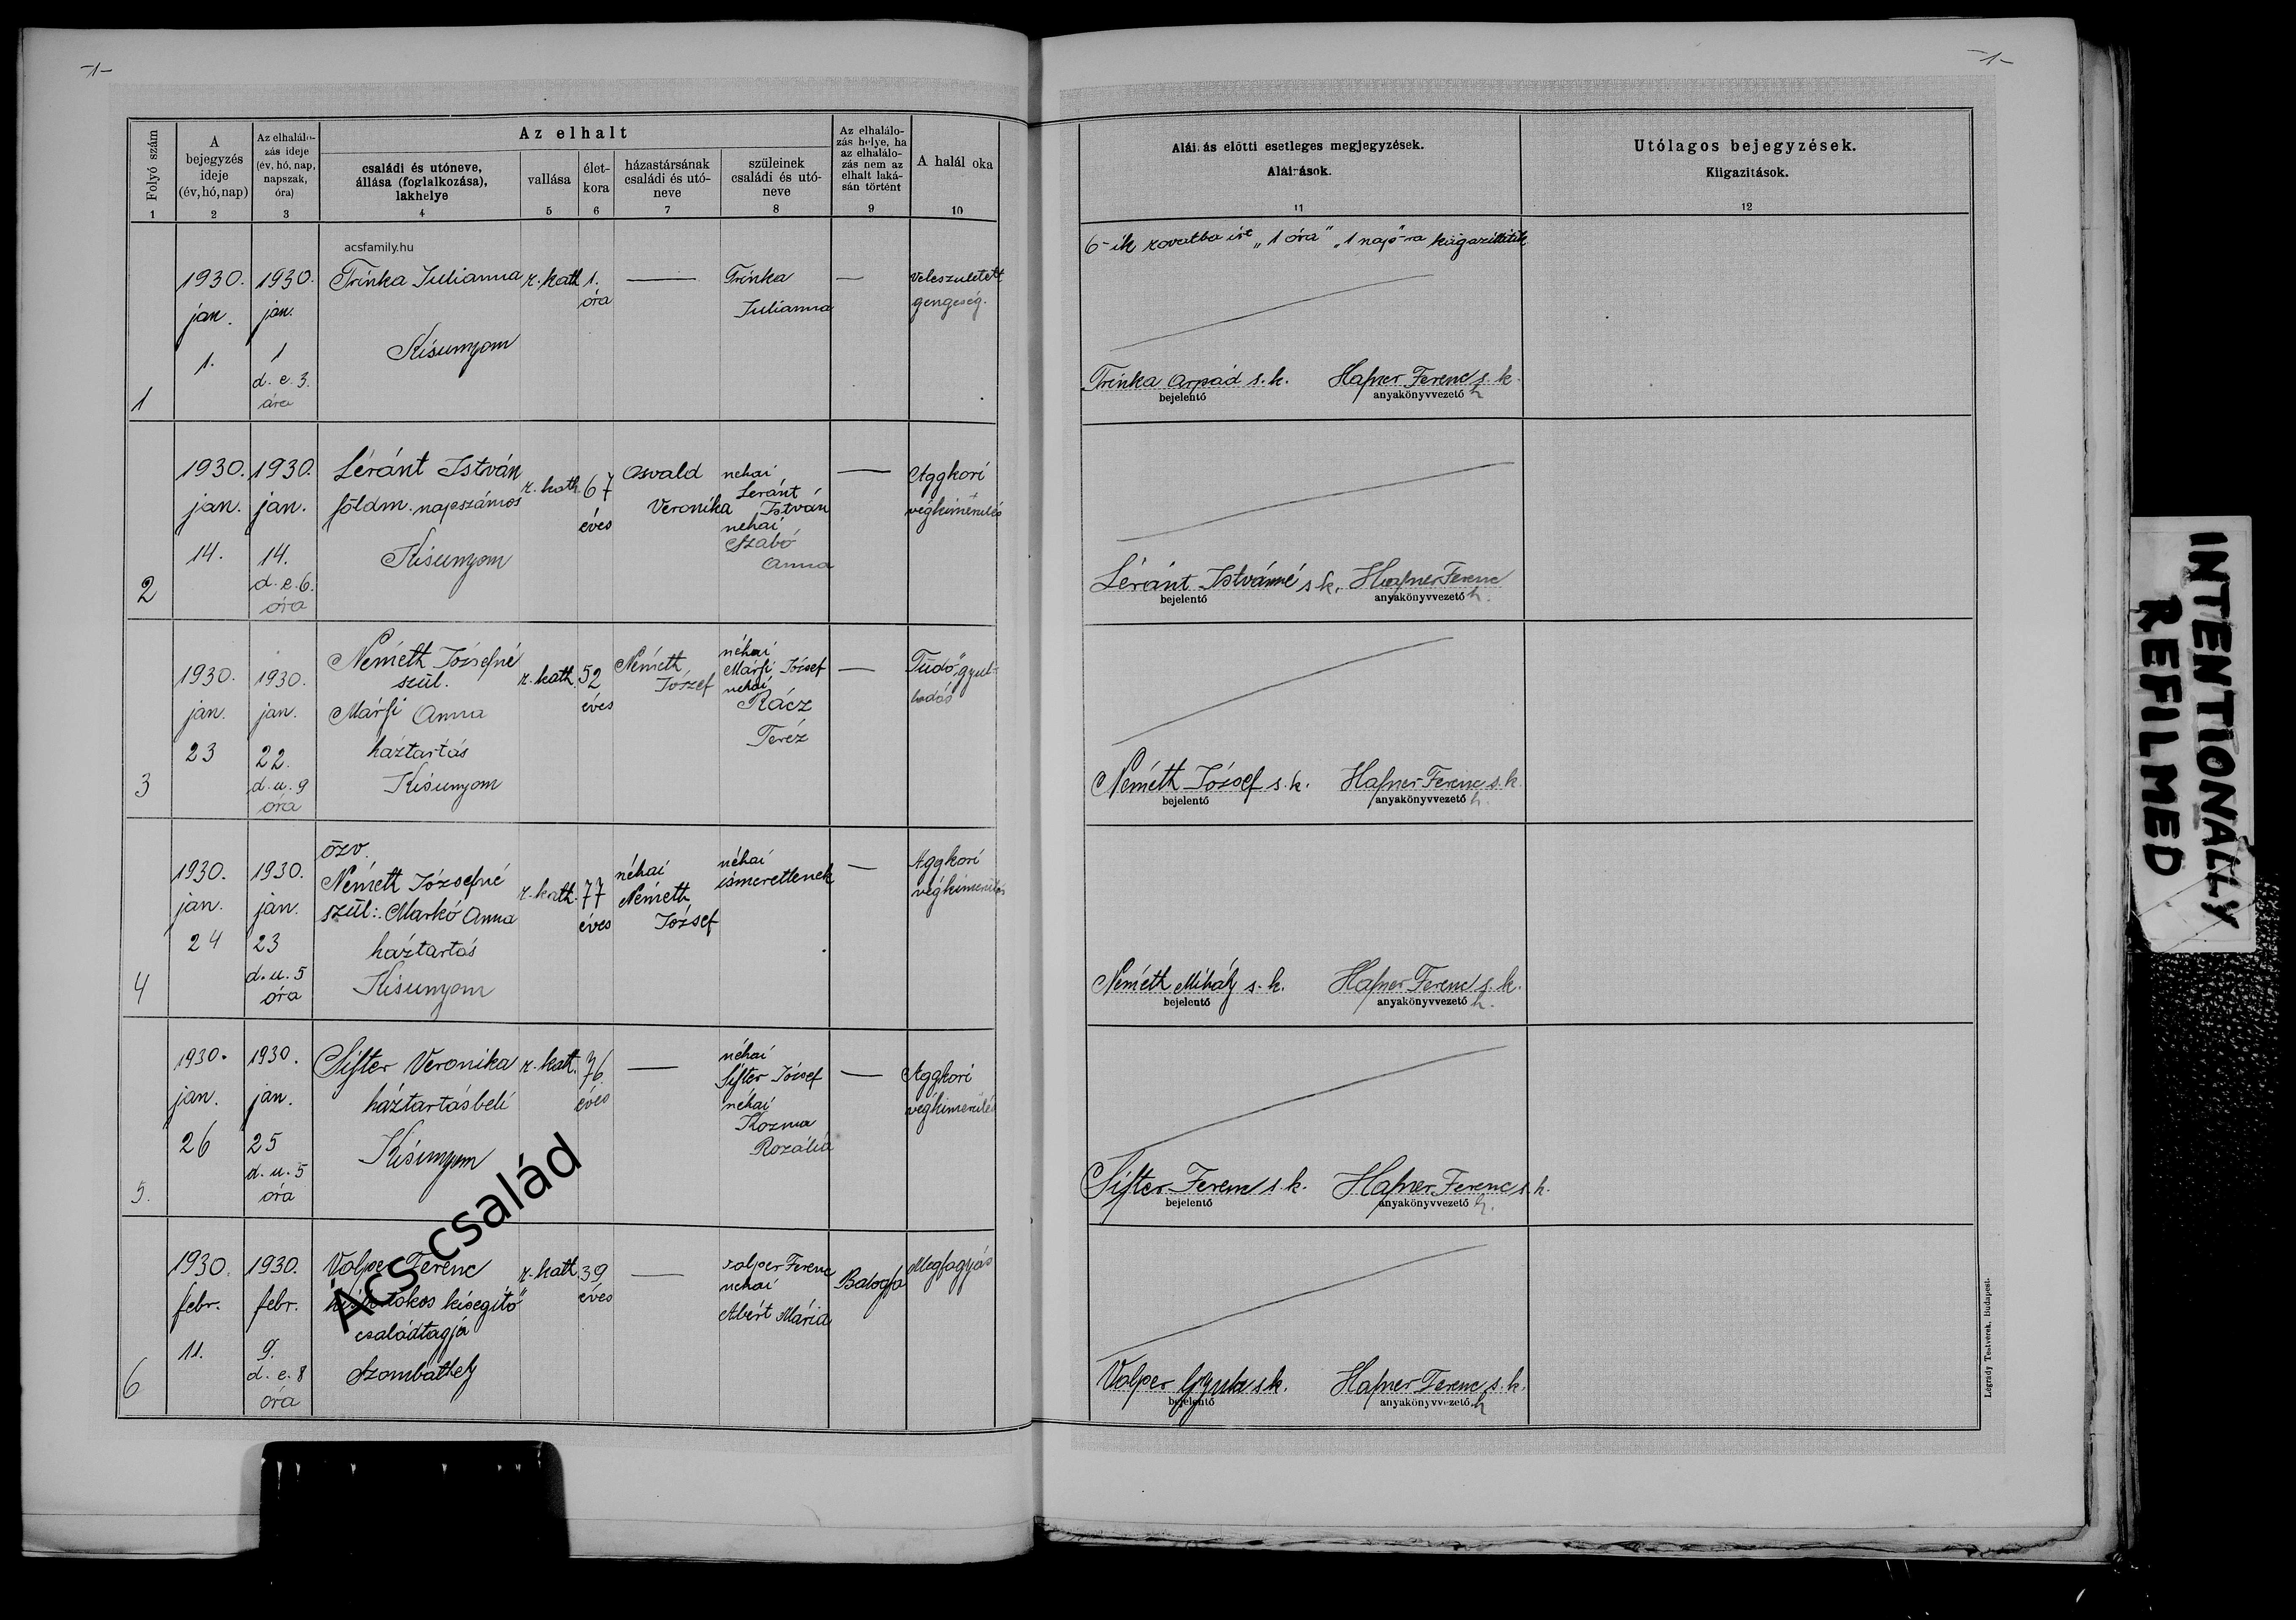 -1-
-1-
Folyó szám
A bejegyzés ideje (év, hó, nap)
Az elhalálozás ideje (év, hó, nap, napszak, óra)
Az elhalt
családi és utóneve, állása (foglalkozása), lakhelye
vallása
életkora
házastársának családi és utóneve
szüleinek családi és utóneve
Az elhalálozás helye, ha az elhalálozás nem az elhalt lakásán történt
A halál oka
Aláírás előtti esetleges megjegyzések.
Aláírások.
Utólagos bejegyzések.
Kiigazítások.
1 2 3 4 5 6 7 8 9 10 11 12
acsfamily.hu
1
1930. jan. 1.
1930. jan. 1 d. e. 3. óra
Trinka Julianna
Kisunyom
r. kath.
1. óra
—
Trinka Julianna
—
Veleszületett gengeség.
6-ik rovatba írt „1 óra" „1 nap"-ra kiigazíttatik
Trinka Arpád s. k.
bejelentő
Hafner Ferenc s. k.
anyakönyvvezető h
2
1930. jan. 14.
1930. jan. 14. d. e. 6. óra
Léránt István
földm. napszámos
Kisunyom
r. kath.
67 éves
Osvald Veronika
nehai Leránt István
nehai Szabó Anna
—
Aggkori végkimerülés
Léránt Istvánné s. k.
bejelentő
Hafner Ferenc
anyakönyvvezető h.
3
1930. jan. 23
1930. jan. 22. d. u. 9 óra
Németh Józsefné
szül.
Márfi Anna
háztartás
Kisunyom
r. kath.
52 éves
Németh József
néhai Márfi József
nehai Rácz Teréz
—
Tüdőgyulladás
Németh József s. k.
bejelentő
Hafner Ferenc s. k.
anyakönyvvezető h.
4
1930. jan. 24
1930. jan. 23 d. u. 5 óra
özv.
Németh Józsefné
szül: Markó Anna
háztartás
Kisunyom
r. kath.
77 éves
néhai Németh József
néhai ismeretlenek
—
Aggkori végkimerülés
Németh Mihály s. k.
bejelentő
Hafner Ferenc s. k.
anyakönyvvezető h.
5.
1930. jan. 26
1930. jan. 25 d. u. 5 óra
Sifter Veronika
háztartásbeli
Kisunyom
r. kath.
76. éves
—
néhai Sifter József
néhai Kozma Rozália
—
Aggkori végkimerülés
Sifter Ferenc s. k.
bejelentő
Hafner Ferenc s. k.
anyakönyvvezető h.
6
1930. febr. 11.
1930. febr. 9. d. e. 8 óra
Volper Ferenc
kisegítő
családtagja
Szombathely
r. kath.
39 éves
—
Volper Ferenc
nehai Albért Mária
Balogfa
Megfagyás
Volper Gyula s. k.
bejelentő
Hafner Ferenc s. k.
anyakönyvvezető h
Ács család
Légrády Testvérek, Budapest.
INTENTIONALLY
REFILMED